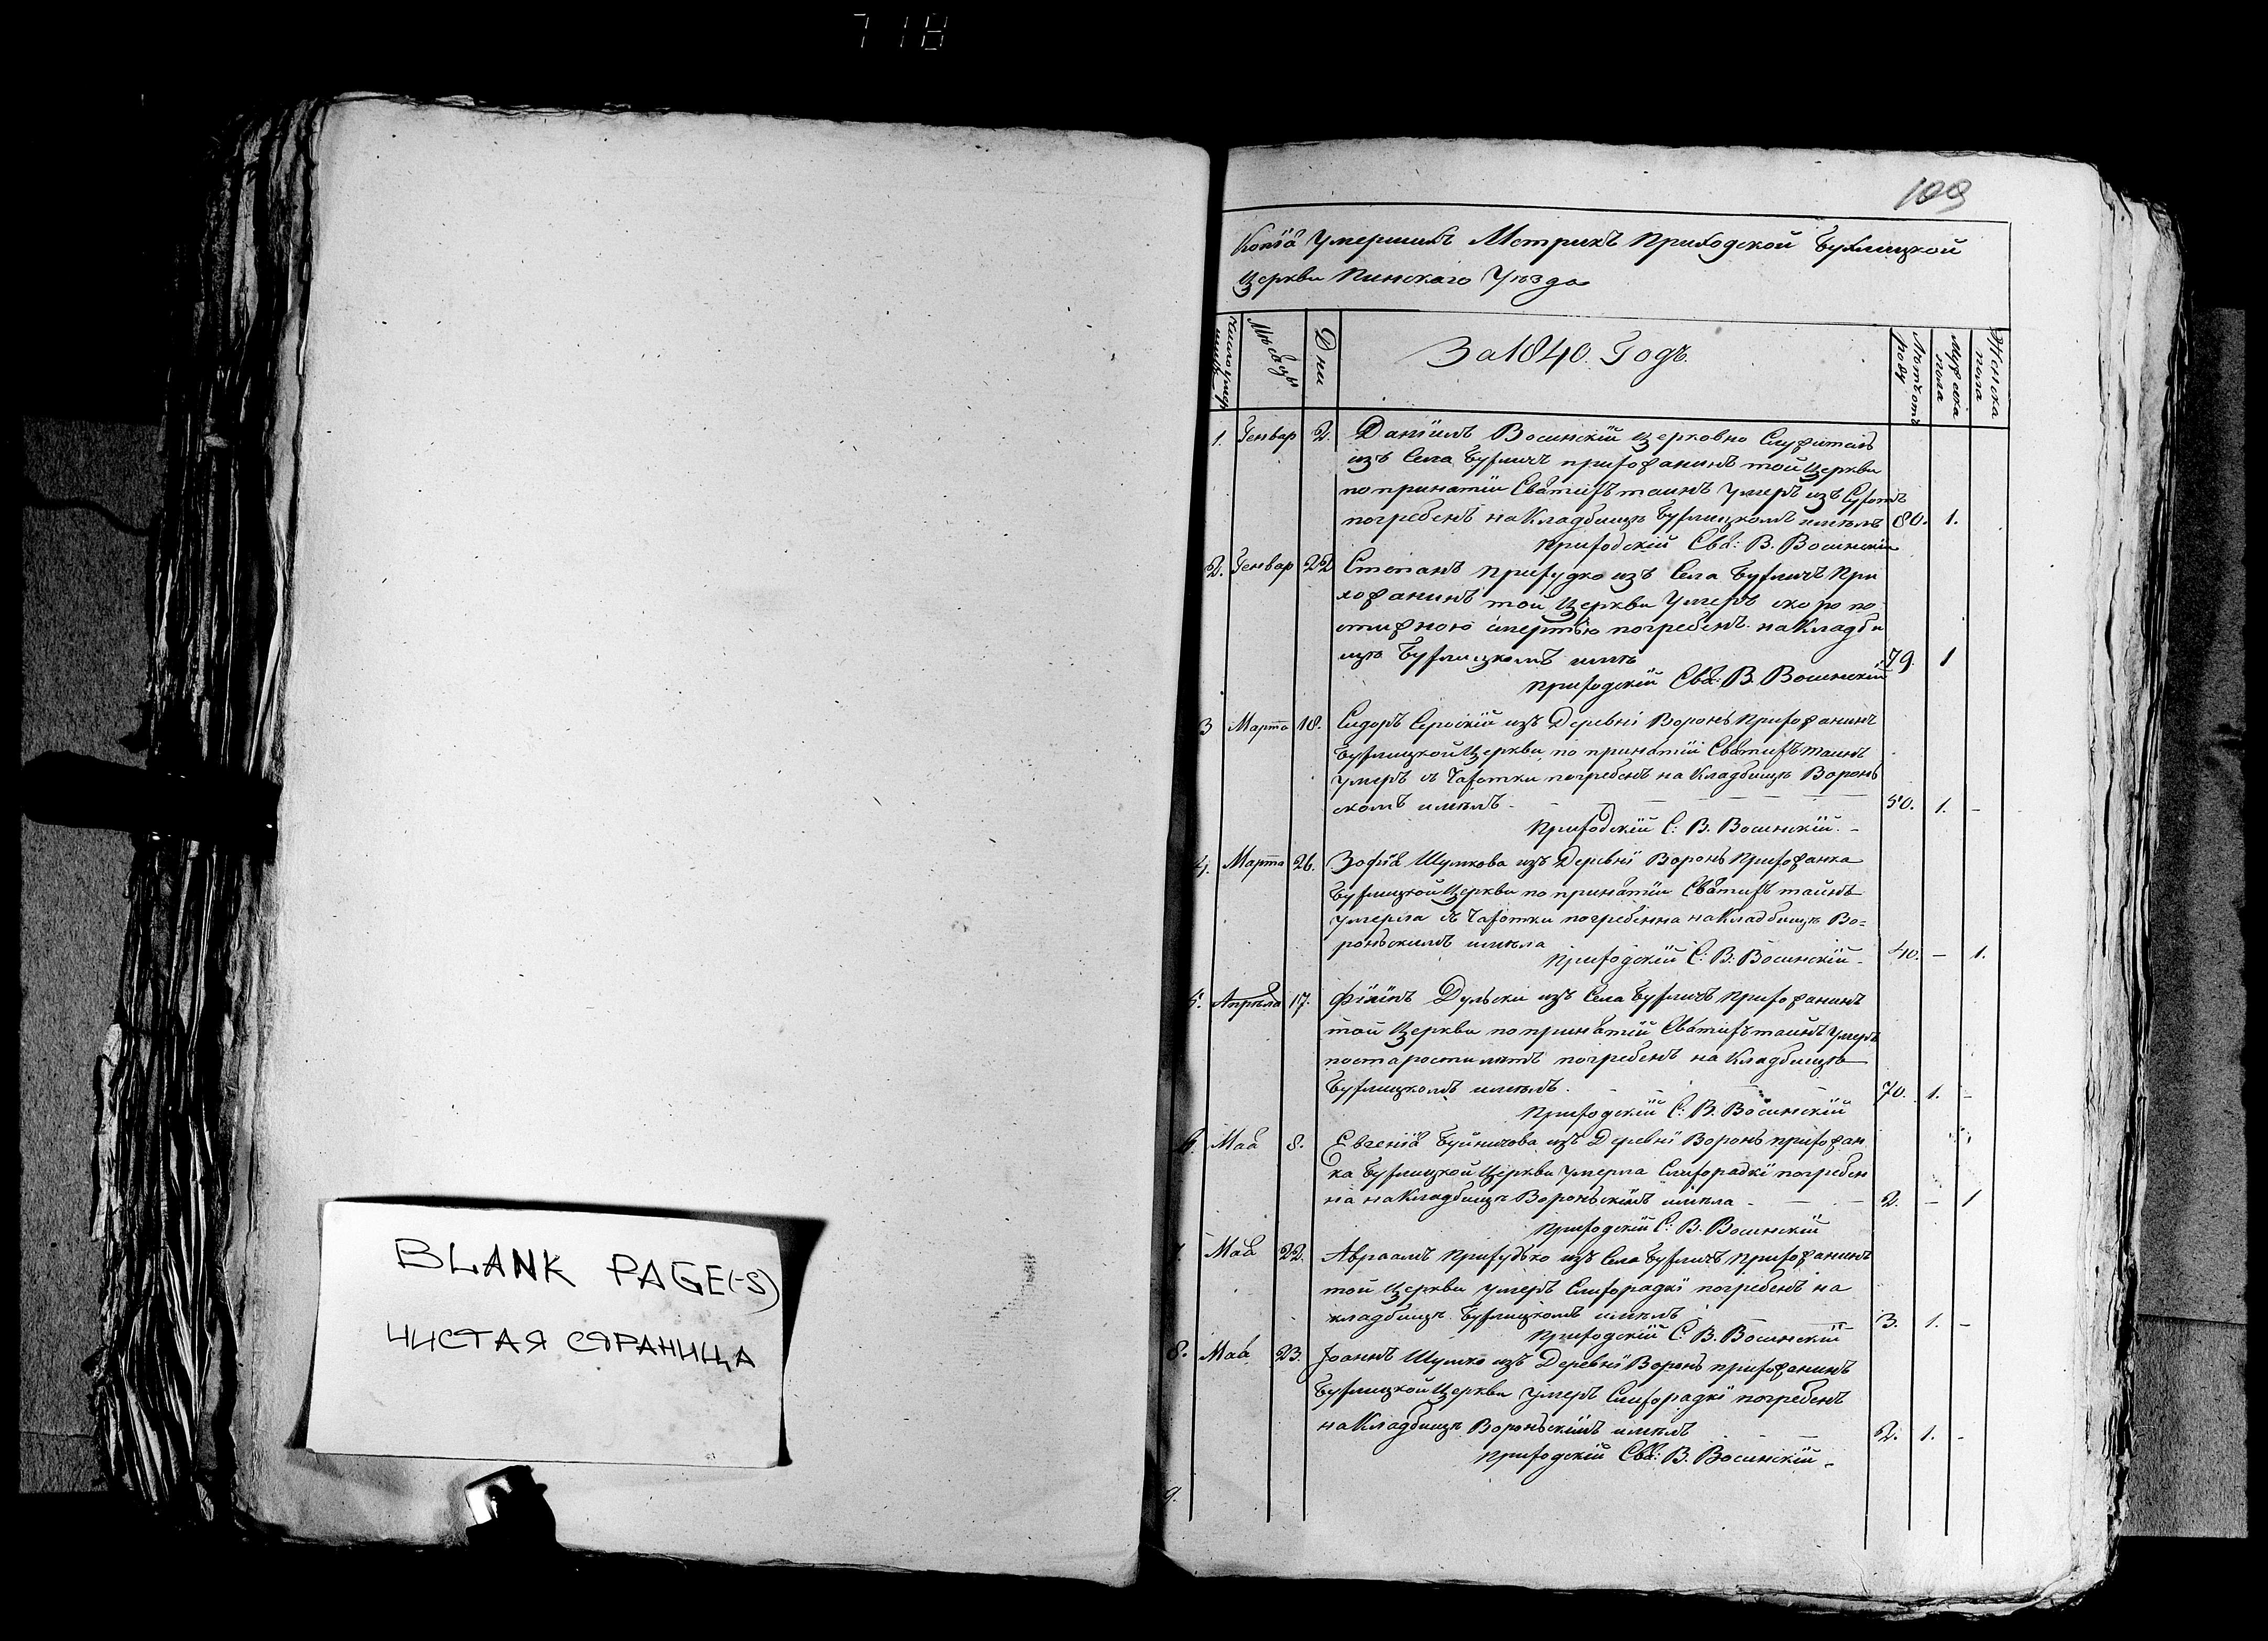 718
BLANK PAGE(-S)
ЧИСТАЯ СТРАНИЦА
109
Копія Умершихъ Метрикъ Приходской Бухлицкой
Церкви Пинскаго Уѣзда
Число умер
Мѣсяцы
Дни
За 1840. Годъ.
Лѣтъ отъ роду
Мужска пола
Женска пола
1. Генвар 2. Даніилъ Восинскій Церковно Служитель
изъ Села Бухличъ прихожанинъ той Церкви
по принатіи Сватихъ таинъ умеръ изъ Сухотъ
погребенъ на Кладбищѣ Бухлицкомъ имѣлъ 80. 1.
Приходскій Сва: В. Восинскій
2. Генвар 22 Степанъ Прихудко изъ Села Бухличъ При
хожанинъ той Церкви Умеръ скоро по
стижною смертью погребенъ на Кладби
щѣ Бухлицкомъ имѣ 79. 1
Приходскій Сва: В. Восинскій
3 Марта 18. Сидоръ Серскій изъ Деревнѣ Воронь Прихожанинъ
Бухлицкой Церкви, по принатіи Сватихъ таинъ
умеръ съ Чахотки погребенъ на Кладбищѣ Воронь
скомъ имѣлъ - 50. 1. -
Приходскій С: В. Восинскій. -
4. Марта 26. Зофіа Шумкова изъ Деревнї Воронь Прихожанка
Бухлицкой Церкви по принатіи Сватихъ таинъ
умерла съ Чахотки погребенна на Кладбищѣ Во=
роньскимъ имѣла 40. - 1.
Приходскій С: В. Восинскій -
5. Апрѣла 17. Філіпъ Дульски изъ Села Бухличъ Прихожанинъ
той Церкви по принатій Сватихъ таинъ умеръ
по старости лѣтъ погребенъ на Кладбищѣ
Бухлицкомъ имѣлъ. 70. 1. -
Приходскій С: В. Восинскій
6. Маа 8. Евгеніа Буйничова изъ Деревнї Воронь прихожан
ка Бухлицкой Церкви умерла Слихорадкї погребен
на на Кладбищѣ Вороньскімъ имѣла - 2. - 1
Приходскій С: В. Восинскій
7. Маа 22. Авраамъ Прихудько изъ Села Бухличъ Прихожанинъ
той Церкви умеръ Слихорадкї погребенъ на
кладбищѣ Бухлицкомъ имѣлъ 3. 1. -
Приходскій С: В. Восинскій
8. Маа 23. Іоаннъ Шумко изъ Деревнї Воронь прихожанинъ
Бухлицкой Церкви умеръ Слихорадкї погребенъ
на Кладбищѣ Вороньскімъ имѣлъ 2. 1. -
Приходскій Сва: В. Восинскій -
9.